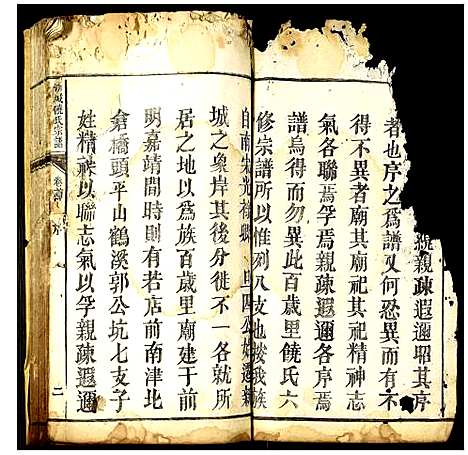 親疎遐邇昭其序
者也序之為譜又何恐異而有不
得不異者廟其廟祀其祀精神志
氣各聯焉孚焉親疎遐邇各序焉
譜烏得而勿異此百歲里饒氏六
修宗譜所以惟列八支也按我族
自南宋光祿卿 四公始遷
城之象岸其其後分徙不一各就所
居之地以為族百歲里廟建于前
明嘉靖間時則有若店前南津北
倉橋頭平山鶴溪郭公坑七支子
姓精神以聯志氣以孚親疎遐邇
城饒氏宗譜
卷首
序
二